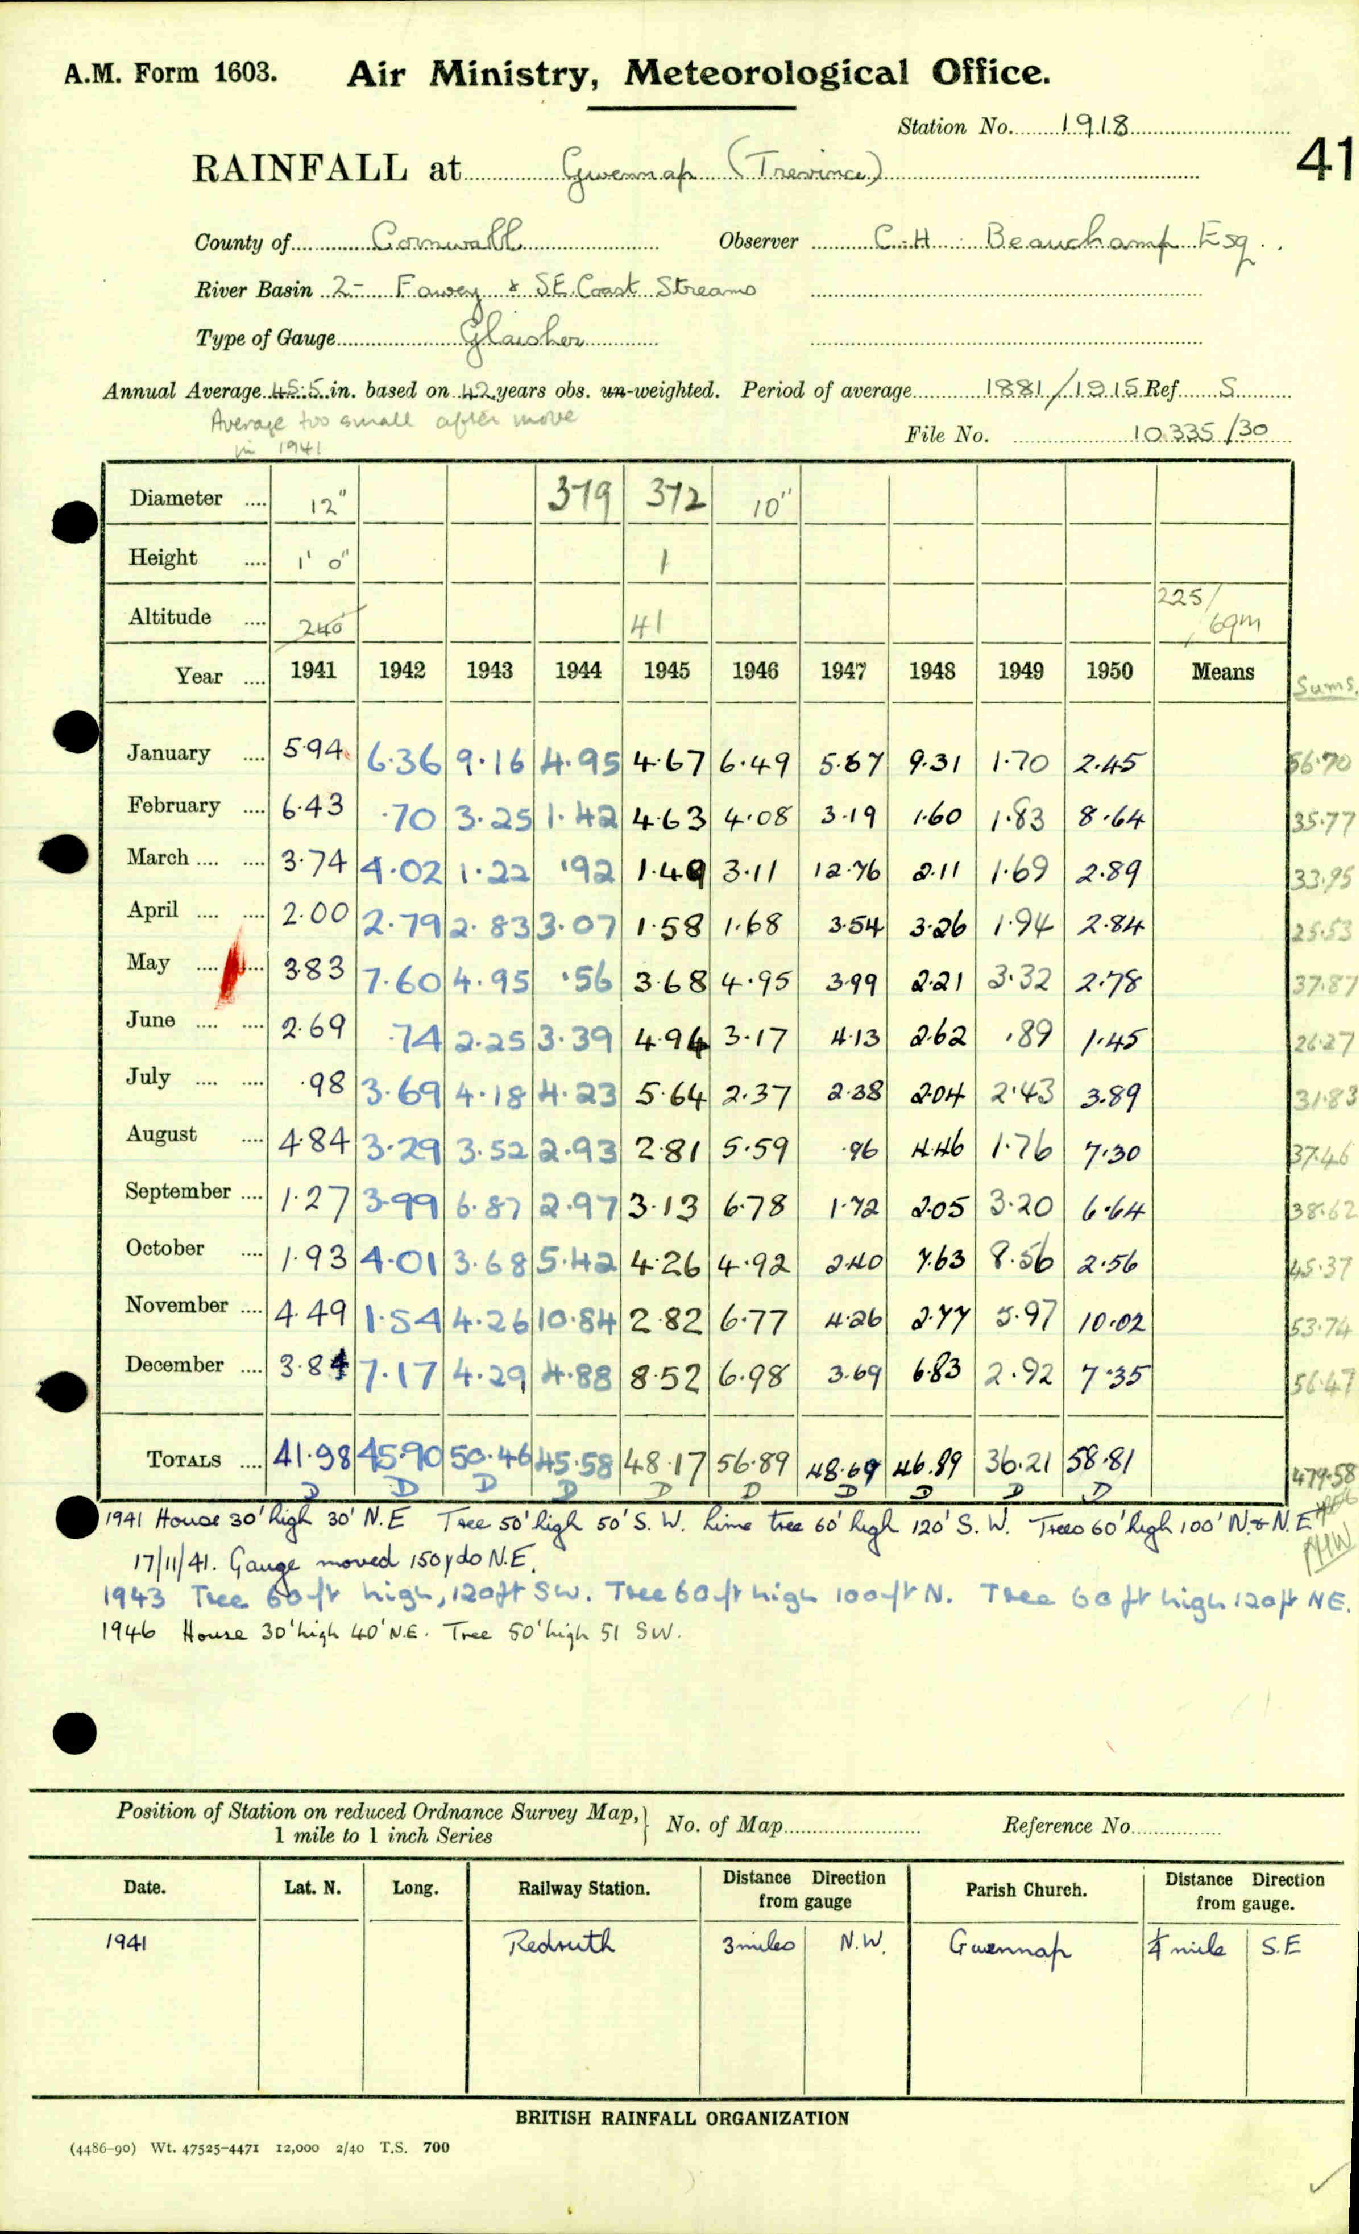 A.M. Form 1603. Air Ministry, Meteorological Office.
Station No. 1918
41
RAINFALL at Gwennap (Trevince)
County of Cornwall Observer C. H. Beauchamp Esq.
River Basin 2- Fowey & S.E. Coast Streams
Type of Gauge Glaisher
Annual Average 45.5 in. based on 42 years obs. un-weighted. Period of average 1881/1915 Ref S
Average too small after move
in 1941
File No. 10335/30
Diameter .... 12" 379 372 10"
Height .... 1' 0" 1
Altitude .... 240 41 225/ 69m
Year .... 1941 1942 1943 1944 1945 1946 1947 1948 1949 1950 Means Sums.
January .... 5.94 6.36 9.16 4.95 4.67 6.49 5.67 9.31 1.70 2.45 56.70
February .... 6.43 .70 3.25 1.42 4.63 4.08 3.19 1.60 1.83 8.64 35.77
March .... .... 3.74 4.02 1.22 .92 1.49 3.11 12.76 2.11 1.69 2.89 33.95
April .... .... 2.00 2.79 2.83 3.07 1.58 1.68 3.54 3.26 1.94 2.84 25.53
May .... .... 3.83 7.60 4.95 .56 3.68 4.95 3.99 2.21 3.32 2.78 37.87
June .... .... 2.69 .74 2.25 3.39 4.94 3.17 4.13 2.62 .89 1.45 26.27
July .... .... .98 3.69 4.18 4.23 5.64 2.37 2.38 2.04 2.43 3.89 31.83
August .... 4.84 3.29 3.52 2.93 2.81 5.59 .96 4.46 1.76 7.30 37.46
September .... 1.27 3.99 6.87 2.97 3.13 6.78 1.72 2.05 3.20 6.64 38.62
October .... 1.93 4.01 3.68 5.42 4.26 4.92 2.40 7.63 8.56 2.56 45.37
November .... 4.49 1.54 4.26 10.84 2.82 6.77 4.26 2.77 5.97 10.02 53.74
December .... 3.84 7.17 4.29 4.88 8.52 6.98 3.69 6.83 2.92 7.35 56.47
TOTALS .... 41.98 45.90 50.46 45.58 48.17 56.89 48.69 46.89 36.21 58.81 479.58
D D D D D D D D D D
1941 House 30' high 30' N.E Tree 50' high 50' S.W. Lime tree 60' high 120' S.W. Trees 60' high 100' N. & N.E
17/11/41. Gauge moved 150 yds N.E.
1943 Tree 60 ft high, 120ft SW. Tree 60 ft high 100 ft N. Tree 60 ft high 120 ft NE.
1946 House 30' high 40' N.E. Tree 50' high 51 SW.
Position of Station on reduced Ordnance Survey Map, 1 mile to 1 inch Series No. of Map Reference No.
Date. Lat. N. Long. Railway Station. Distance Direction from gauge Parish Church. Distance Direction from gauge.
1941 Redruth 3 miles N.W. Gwennap ¼ mile S.E
BRITISH RAINFALL ORGANIZATION
(4486-90) Wt. 47525-4471 12,000 2/40 T.S. 700